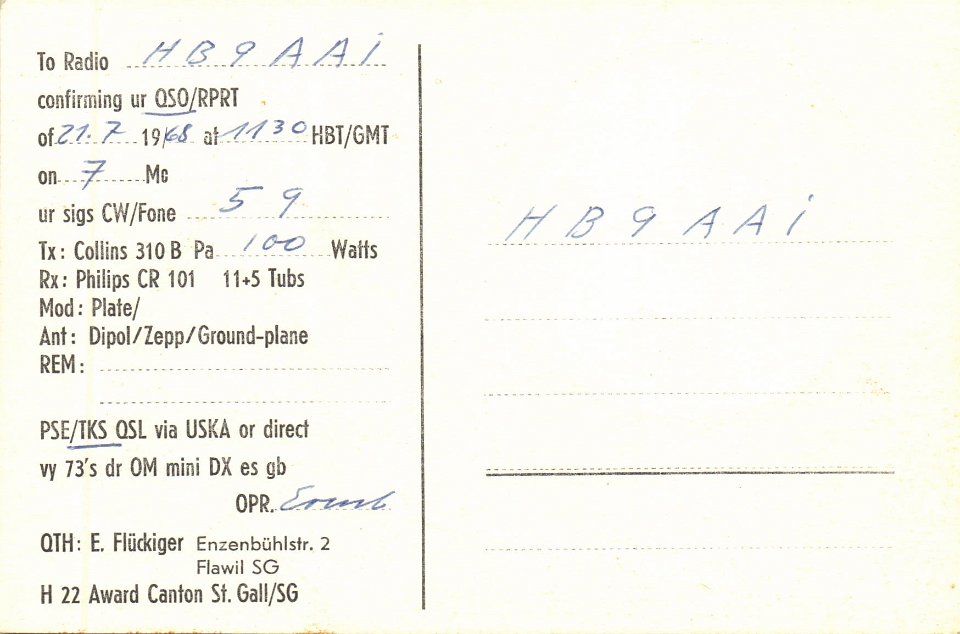 To Radio HB9AAi
confirming ur QSO/RPRT
of 21.7 1968 at 1130 HBT/GMT
on 7 Mc
ur sigs CW/Fone 59
Tx: Collins 310 B Pa 100 Watts
Rx: Philips CR 101 11+5 Tubs
Mod: Plate/
Ant: Dipol/Zepp/Ground-plane
REM:
PSE/TKS QSL via USKA or direct
vy 73's dr OM mini DX es gb
OPR. Ernst
QTH: E. Flückiger Enzenbühlstr. 2
Flawil SG
H 22 Award Canton St. Gall/SG
HB9AAi